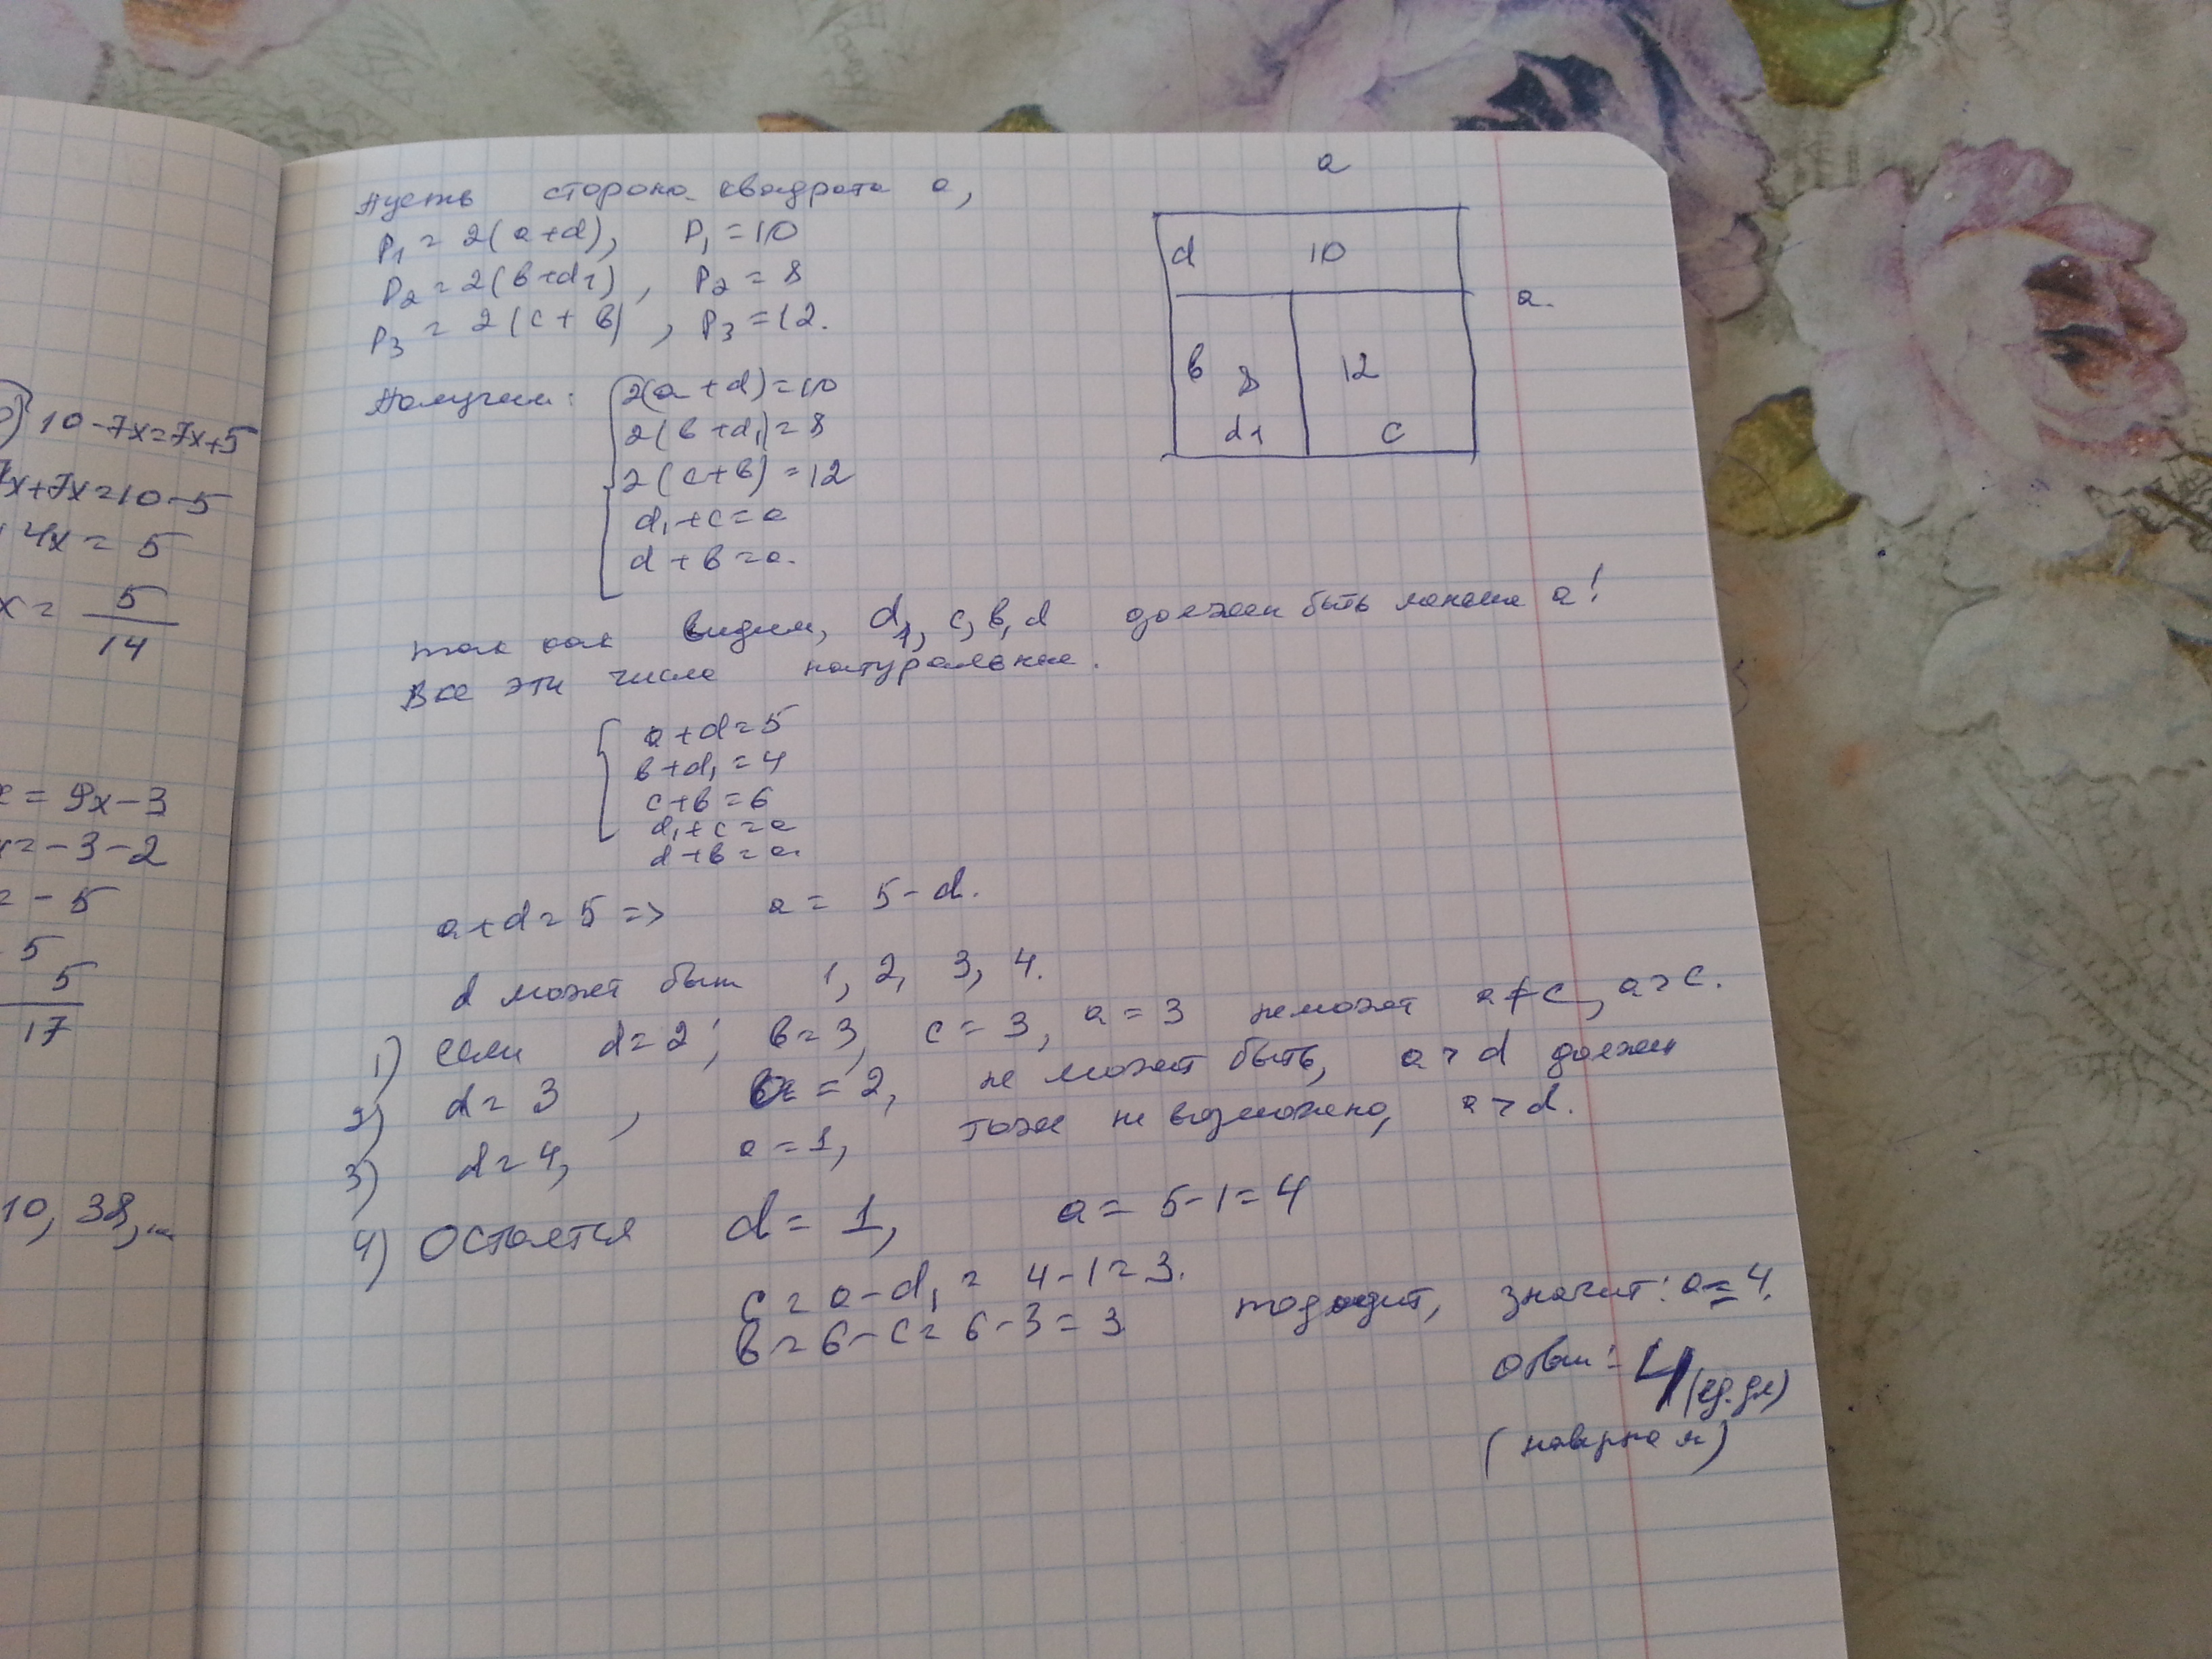 10-7x=7x+5
7x+7x=10-5
14x = 5
x = 5/14
x = 9x-3
x=-3-2
= -5
5
5/17
10, 38, ...
Пусть сторона квадрата a,
P1 = 2(a+d), P1 = 10
P2 = 2(b+d1), P2 = 8
P3 = 2(c+b), P3 = 12.
Получим: 2(a+d)=10
2(b+d1)=8
2(c+b)=12
d1+c=a
d+b=a.
a
d 10
a.
b 8 12
d1 c
так как видим, d1, c, b, d должен быть меньше a!
Все эти числа натуральные.
a+d=5
b+d1=4
c+b=6
d1+c=a
d+b=a
a+d=5 => a = 5-d.
d может быть 1, 2, 3, 4.
1) если d=2; b=3, c=3, a=3 неможет a≠c, a>c.
2) d=3, a=2, не может быть, a>d должен
3) d=4, a=1, тоже не возможно, a>d.
4) Остается d=1, a=5-1=4
c=a-d1=4-1=3.
b=6-c=6-3=3 подходит, значит: a=4.
Ответ: 4 (ед.дл)